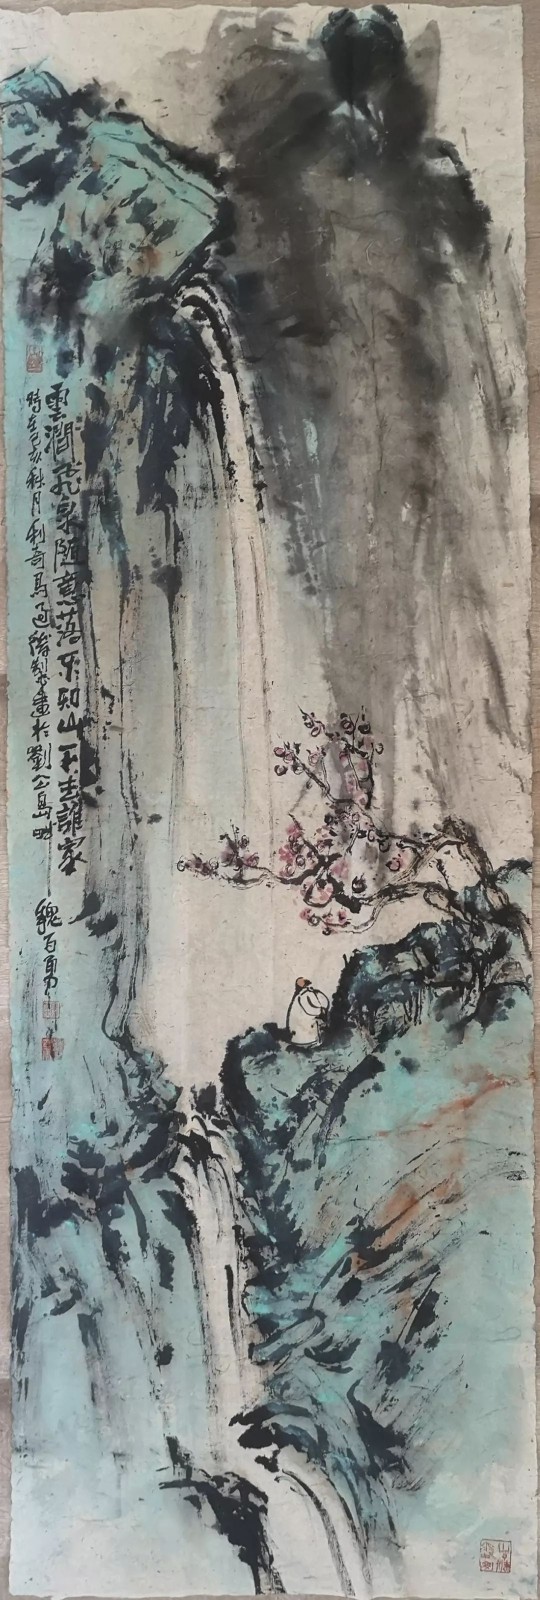 雲澗飛泉隨意落不知山下出誰家
時在己亥秋月利奇馬過後製畫於劉公島畔
魏百勇